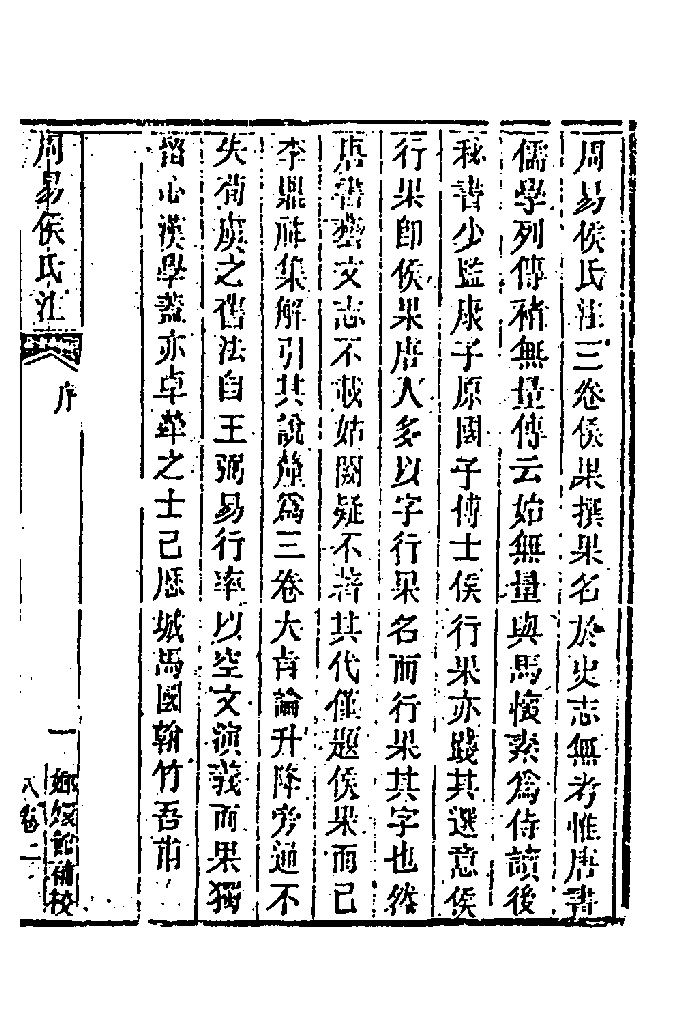 周易侯氏注三卷侯果撰果名於史志無考惟唐書
儒學列傳褚無量傳云始無量與馬懷素爲侍讀後
秘書少監康子原國子博士侯行果亦踐其選意侯
行果卽侯果唐人多以字行果名而行果其字也然
唐書藝文志不載姑闕疑不著其代僅題侯果而已
李鼎祚集解引其說釐爲三卷大旨論升降旁通不
失荀虞之舊法自王弼易行率以空文演義而果獨
留心漢學蓋亦卓犖之士已歷城馬國翰竹吾甫
周易侯氏注
序
一
嫏嬛館補校
八卷二